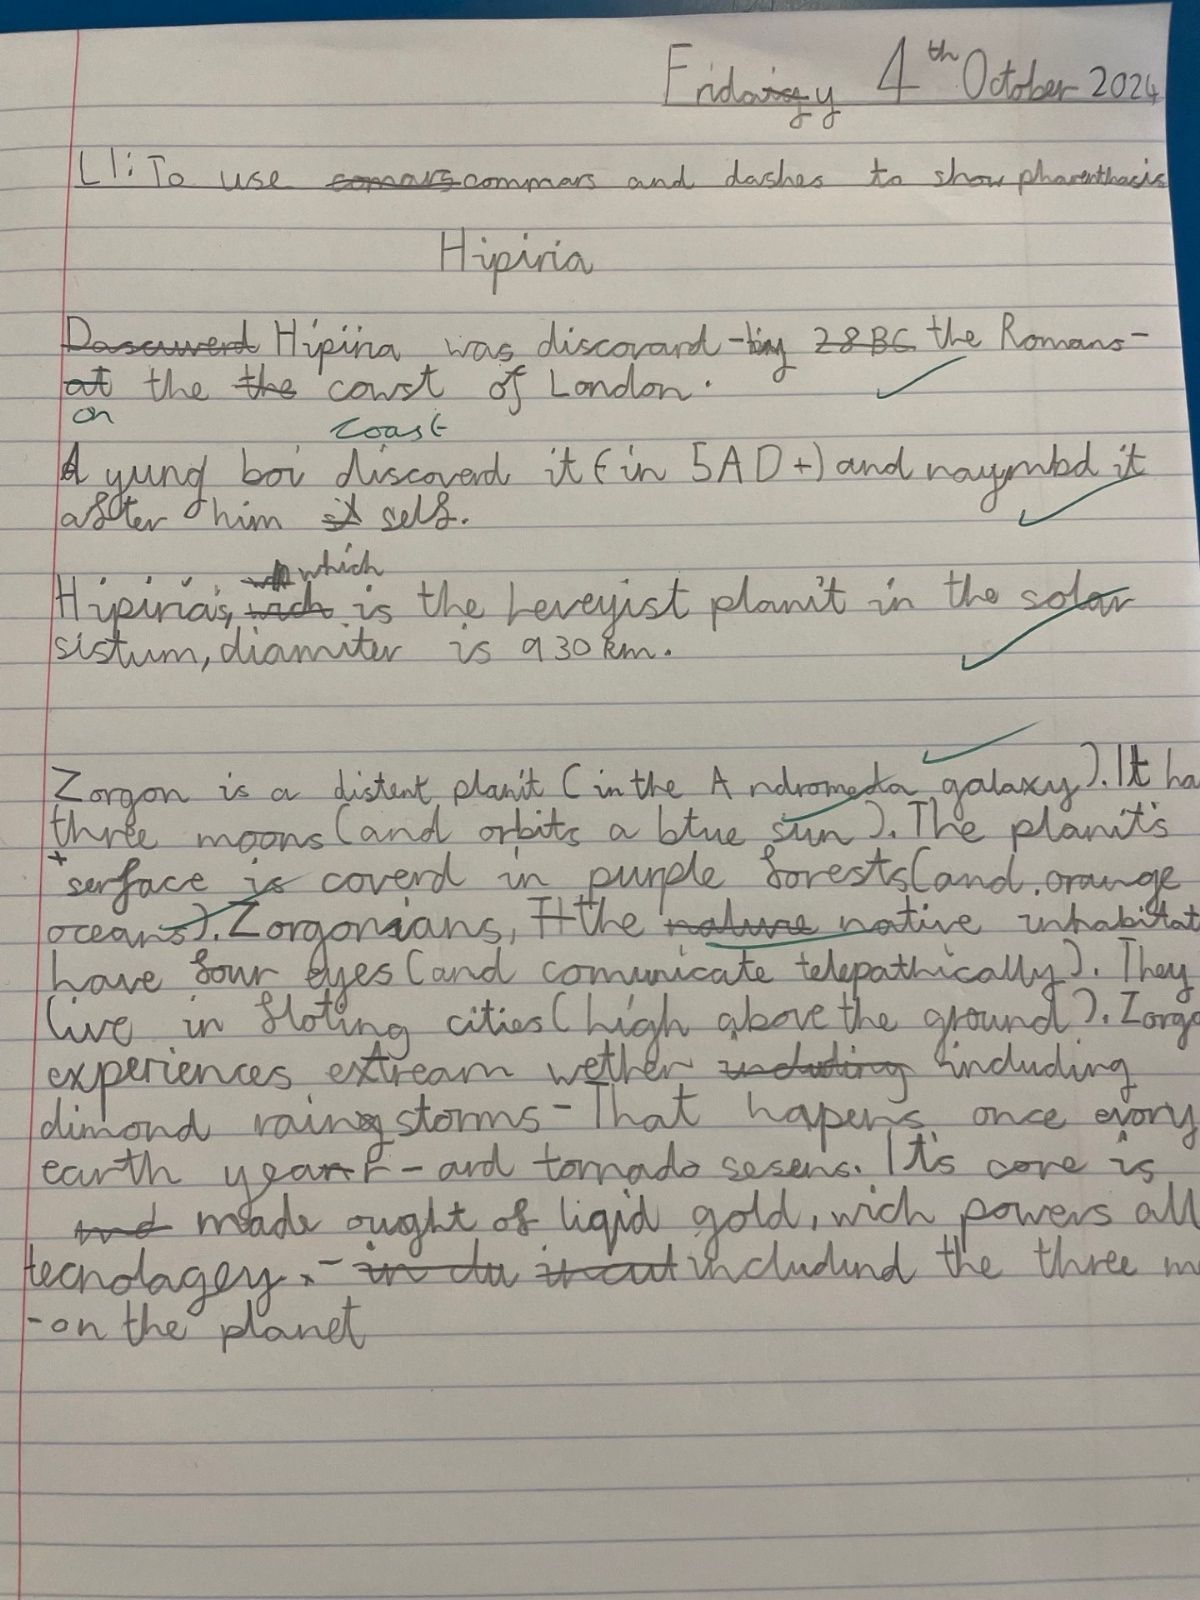 Fridaisy y 4th October 2024
LI: To use comars commars and dashes to show pharenthasis
Hipiria
Dascuwerd Hipiria was discovard -by 28BC the Romans-
at the the cowst of London.
on coast
A yung boi discoverd it (in 5AD+) and naymbd it
after him it self.
which
Hipiria's, wich is the heveyist planit in the solar
sistum, diamiter is 930km.
Zorgon is a distent planit (in the Andromeda galaxy). It ha
three moons (and orbits a blue sun). The planit's
serface is coverd in purple forests (and orange
oceans). Zorgonians, the nature native inhabitat
have four eyes (and comunicate telepathically). They
live in floting cities (high above the ground). Zorgo
experiences extream wether including including
dimond raing storms - That hapens once evory
earth year - and tornado sesens. It's core is
and made ought of liqid gold, wich powers all
tecnolagey - in clu includind the three m
- on the planet